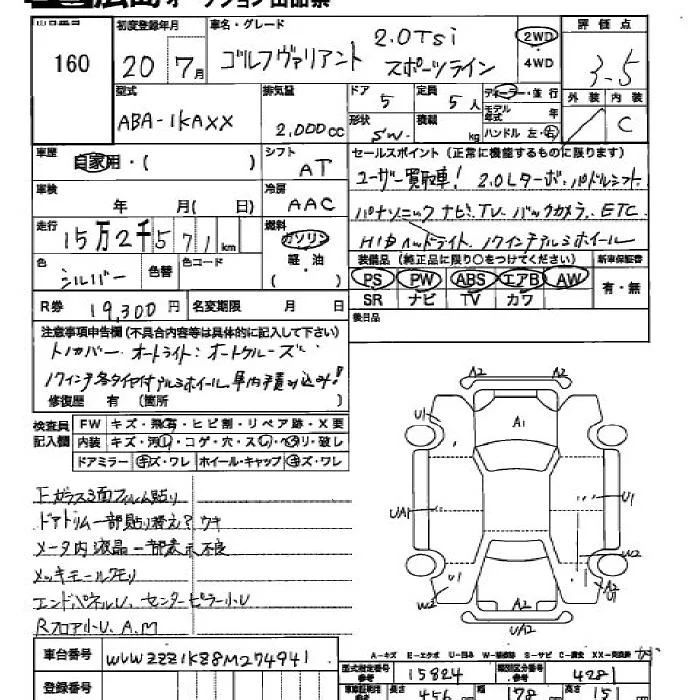 広島 オークション 出品票
160
初度登録年月 20 7月
車名・グレード ゴルフヴァリアント 2.0TSi スポーツライン
2WD ・ 4WD
評価点 3.5
外装 内装 C
型式 ABA-1KAXX
排気量 2,000cc
ドア 5 定員 5人
形状 SW 積載 kg
ディーラー・並行
モデル年式 年
ハンドル 左・右
車歴 自家用・( )
シフト AT
車検 年 月( 日)
冷房 AAC
走行 15万2千571km
燃料 ガソリン 軽油 ( )
色 シルバー 色替 色コード
R券 19,300円 名変期限 月 日
セールスポイント (正常に機能するものに限ります)
ユーザー買取車! 2.0Lターボ.パドルシフト.
パナソニックナビ.TV.バックカメラ.ETC.
HIDヘッドライト.17インチアルミホイール
装備品 (純正品に限り○をつけてください) 新車保証書
PS PW ABS エアB AW 有・無
SR ナビ TV カワ
後日品
注意事項申告欄(不具合内容等は具体的に記入して下さい)
トノカバー.オートライト:オートクルーズ
17インチ冬タイヤ付アルミホイール.車内予積み込み!
修復歴 有 (箇所 )
検査員記入欄
FW キズ・飛石・ヒビ割・リペア跡・X要
内装 キズ・汚レ・コゲ・穴・スレ・ヘタリ・破レ
ドアミラー キズ・ワレ ホイール・キャップ キズ・ワレ
Fガラス3面フィルム貼り
ドアトリム一部貼り替え? ウキ
メータ内液晶一部表示不良
メッキモールクモリ
エンドパネルU.センターピラー小U
Rフロア小U.A.M
A2 A2
U1 A1
UA1 U1
W2
U1 A2
U1
W2
UA2
A-キズ E-エクボ U-凹み W-補修跡 S-サビ C-腐食 XX-交換済
車台番号 WVWZZZ1KZ8M274941
登録番号
型式指定番号 15824 類別区分番号 4281
長さ 456 幅 178 高さ 151